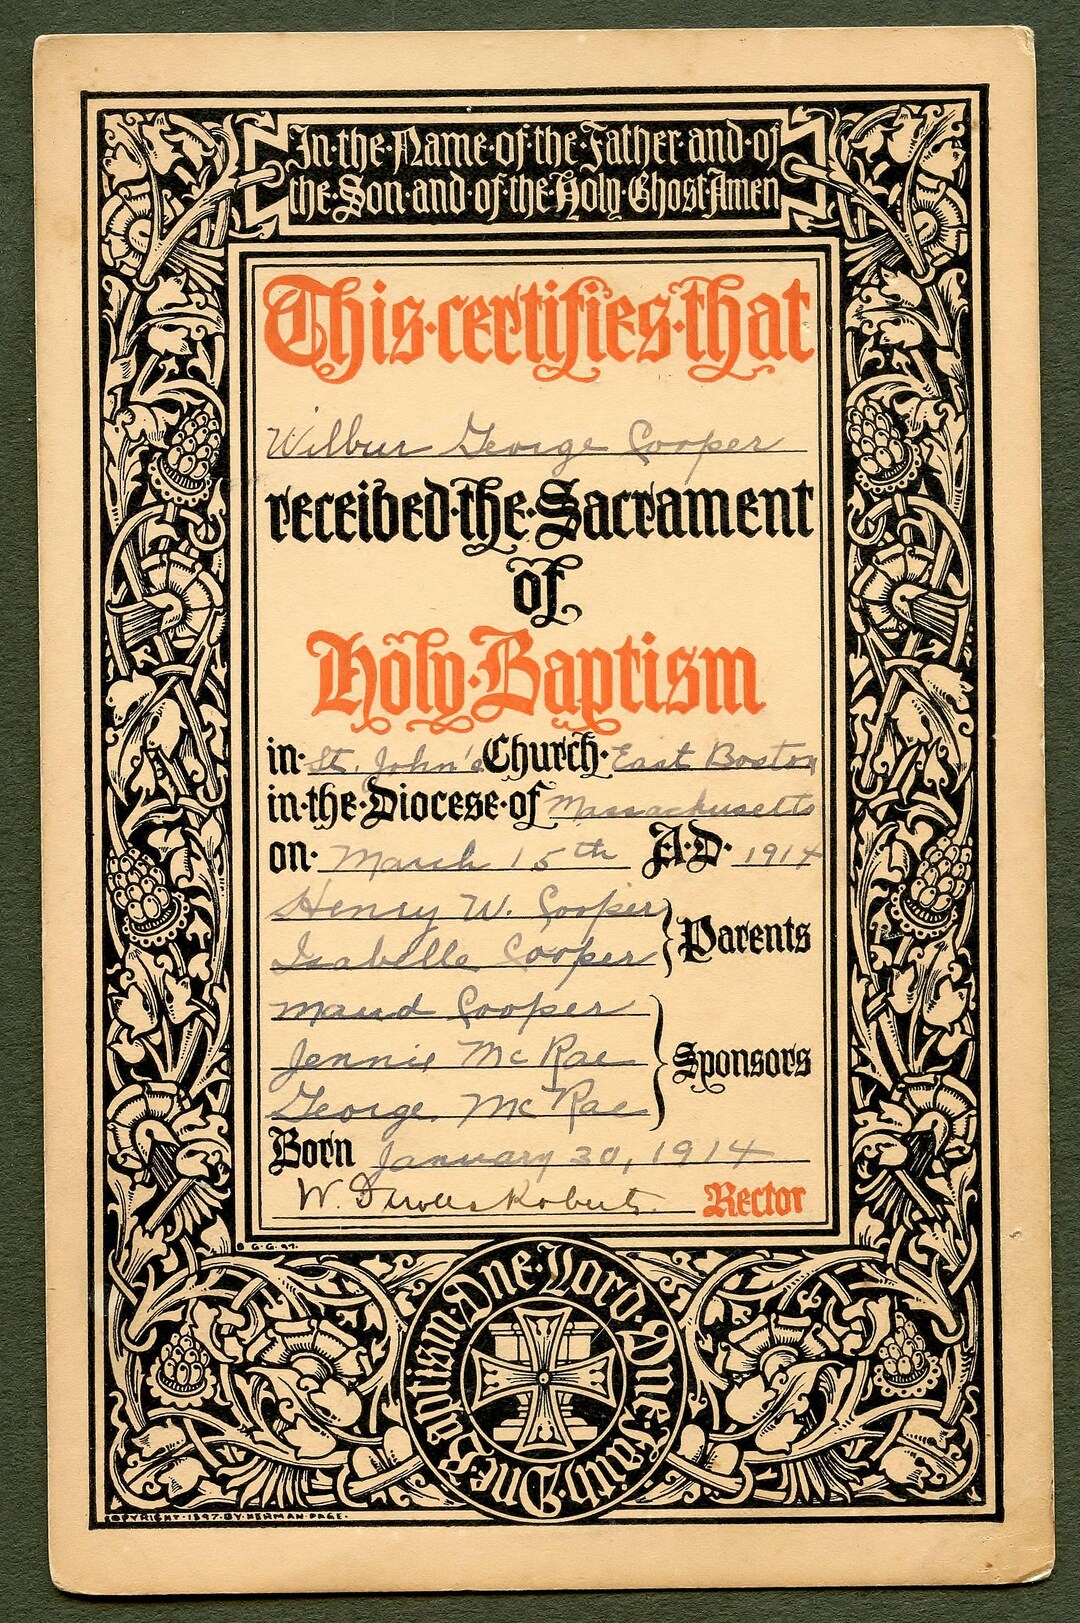 In·the·Name·of·the·Father·and·of
the·Son·and·of·the·Holy·Ghost·Amen
This·certifies·that
Wilbur George Cooper
received·the·Sacrament
of
Holy·Baptism
in· St. John's Church· East Boston
in·the·Diocese·of Massachusetts
on· March 15th A·D· 1914
Henry W. Cooper
Isabelle Cooper
Parents
Maud Cooper
Jennie McRae
George McRae
Sponsors
Born January 30, 1914
W. Roberts. Rector
B·G·G·97.
One·Lord·One·Faith·One·Baptism·
COPYRIGHT·1897·BY·HERMAN·PAGE·